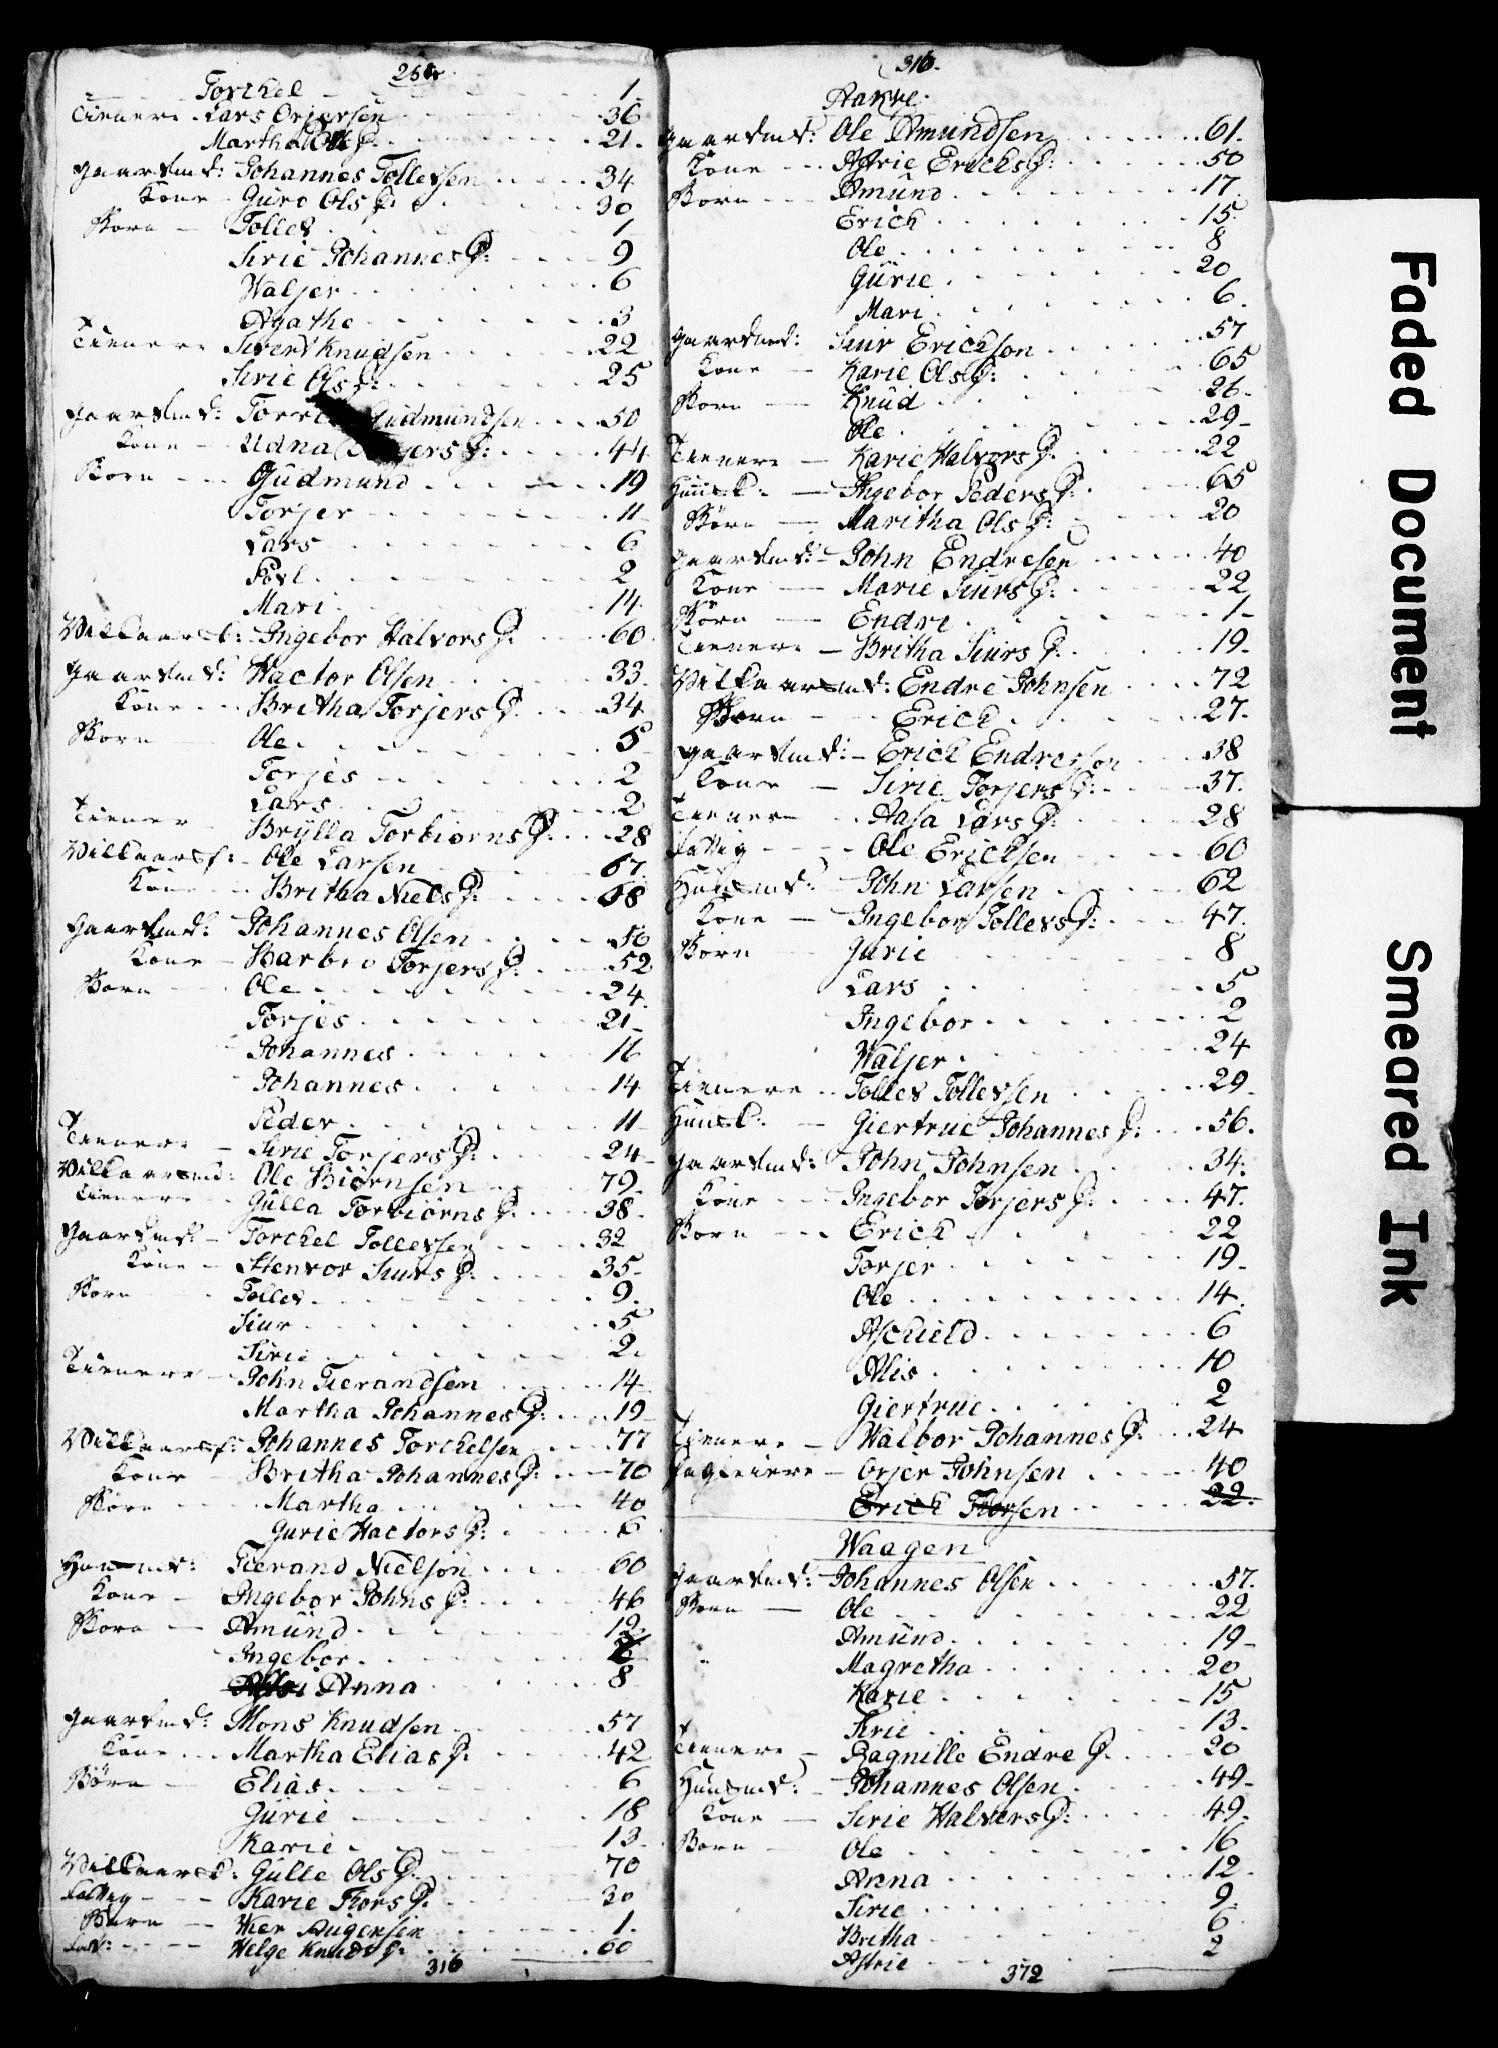 Torchel - - - 1.
Tienere Lars Orjersen 36
Martha D: 21.
Gaardmd: Johannes Tollevsen 34
Kone Guro Ols D: 30
Børn Tollev 1
Sirie Johannes D: 9
Waljer 6
Agathe 3
Tienere Sivert Knudsen 22
Sirie Ols D: 25
Gaardmd: Gudmundsen 50
Kone Udna D: 44
Børn Gudmund 19
Torjer 11
Lars 6
Povl 2
Mari 14
Vilkaarsk: Ingebor Halvors D: 60
Gaardmd: Hactor Olsen 33
Kone Britha Torjers D. 34
Børn Ole 5
Torjes 2
Lars 2
Tiener Brylla Torbiørns D: 28
Vilkaarsf: Ole Larsen 67
Kone Britha Niels D: 68
Gaardmd: Johannes Olsen 56
Kone Barbro Torjers D: 52
Børn Ole 24
Torjes 21
Johannes 16
Johannes 14
Peder 11
Tienere Sirie Torjers D: 24
Vilkaarsmd: Ole Biørnsen 79
Tienere Gulla Torbiørns D: 38
Gaardmd: Torchel Tollevsen 32
Kone Stenvor Siurs D: 35
Børn Tollev 9
Siur 5
Sirie 2
Tienere John Tierandsen 14
Martha Johannes D: 19
Vilkaarsf: Johannes Torchelsen 77
Kone Britha Johannes D: 70
Børn Martha 40
Gurie Hactors D: 6
Huusmd: Tierand Nielson 60
Kone Ingebor Johns D: 46
Børn Amund 12
Ingebor
Anna 8
Gaardmd: Mons Knudsen 57
Kone Martha Elias D: 42
Børn Elias 6
Gurie 18
Karie 13
Vilkaarsk: Gulle Ols D. 70
Fattig Karie Thors D: 30
Barn 1.
Fat: Helge Knuds D: 60
316
316.
Aakre.
Gaardmd: Ole Amundsen 61.
Kone Astrie Erichs D: 50
Børn Amund 17
Erich 15
Ole 8
Gurie 20
Mari 6
Gaardmd: Siur Erickson 57
Kone Karie Ols D: 65
Børn Knud 26
Ole 29
Tienere Karie Halvors D. 22
Huusk: Ingebor Peders D: 65
Børn Maritha Ols D: 20
Gaardmd: John Endresen 40
Kone Marie Siurs D: 22
Børn Endre 1
Tienere Britha Siurs D. 19
Vilkaarsmd: Endre Johnsen 72
Børn Erich 27.
Gaardmd: Erich Endreson 38
Kone Sirie Torjers D: 37.
Tienere Aasa Lars D: 28
Fattig Ole Erichsen 60
Huusmd: John Larsen 62
Kone Ingebor Tollevs D: 47.
Børn Gurie 8
Lars 5
Ingebor 2
Waljer 24
Tienere Tollev Tollevsen 29
Huusk: Giertrue Johannes D: 56.
Gaardmd: John Johnsen 34.
Kone Ingebor Torjers D: 47.
Børn Erich 22
Torjer 19
Ole 14
Aschield 6
Alis 10
Giertrue 2
Tienere Walbor Johannes D: 24
Orjer Johnsen 40
Erich Thorsen 22.
Waagen
Gaardmd: Johannes Olsen 57.
Børn Ole 22
Amund 19
Magretha 20
Karie 15
Sirie 13
Tienere Ragnille Endre D. 20
Huusmd: Johannes Olsen 49
Kone Sirie Halvers D: 49.
Børn Ole 16
Anna 12
Sirie 9
Britha 6
Astrie 2
372
Faded Document
Smeared Ink